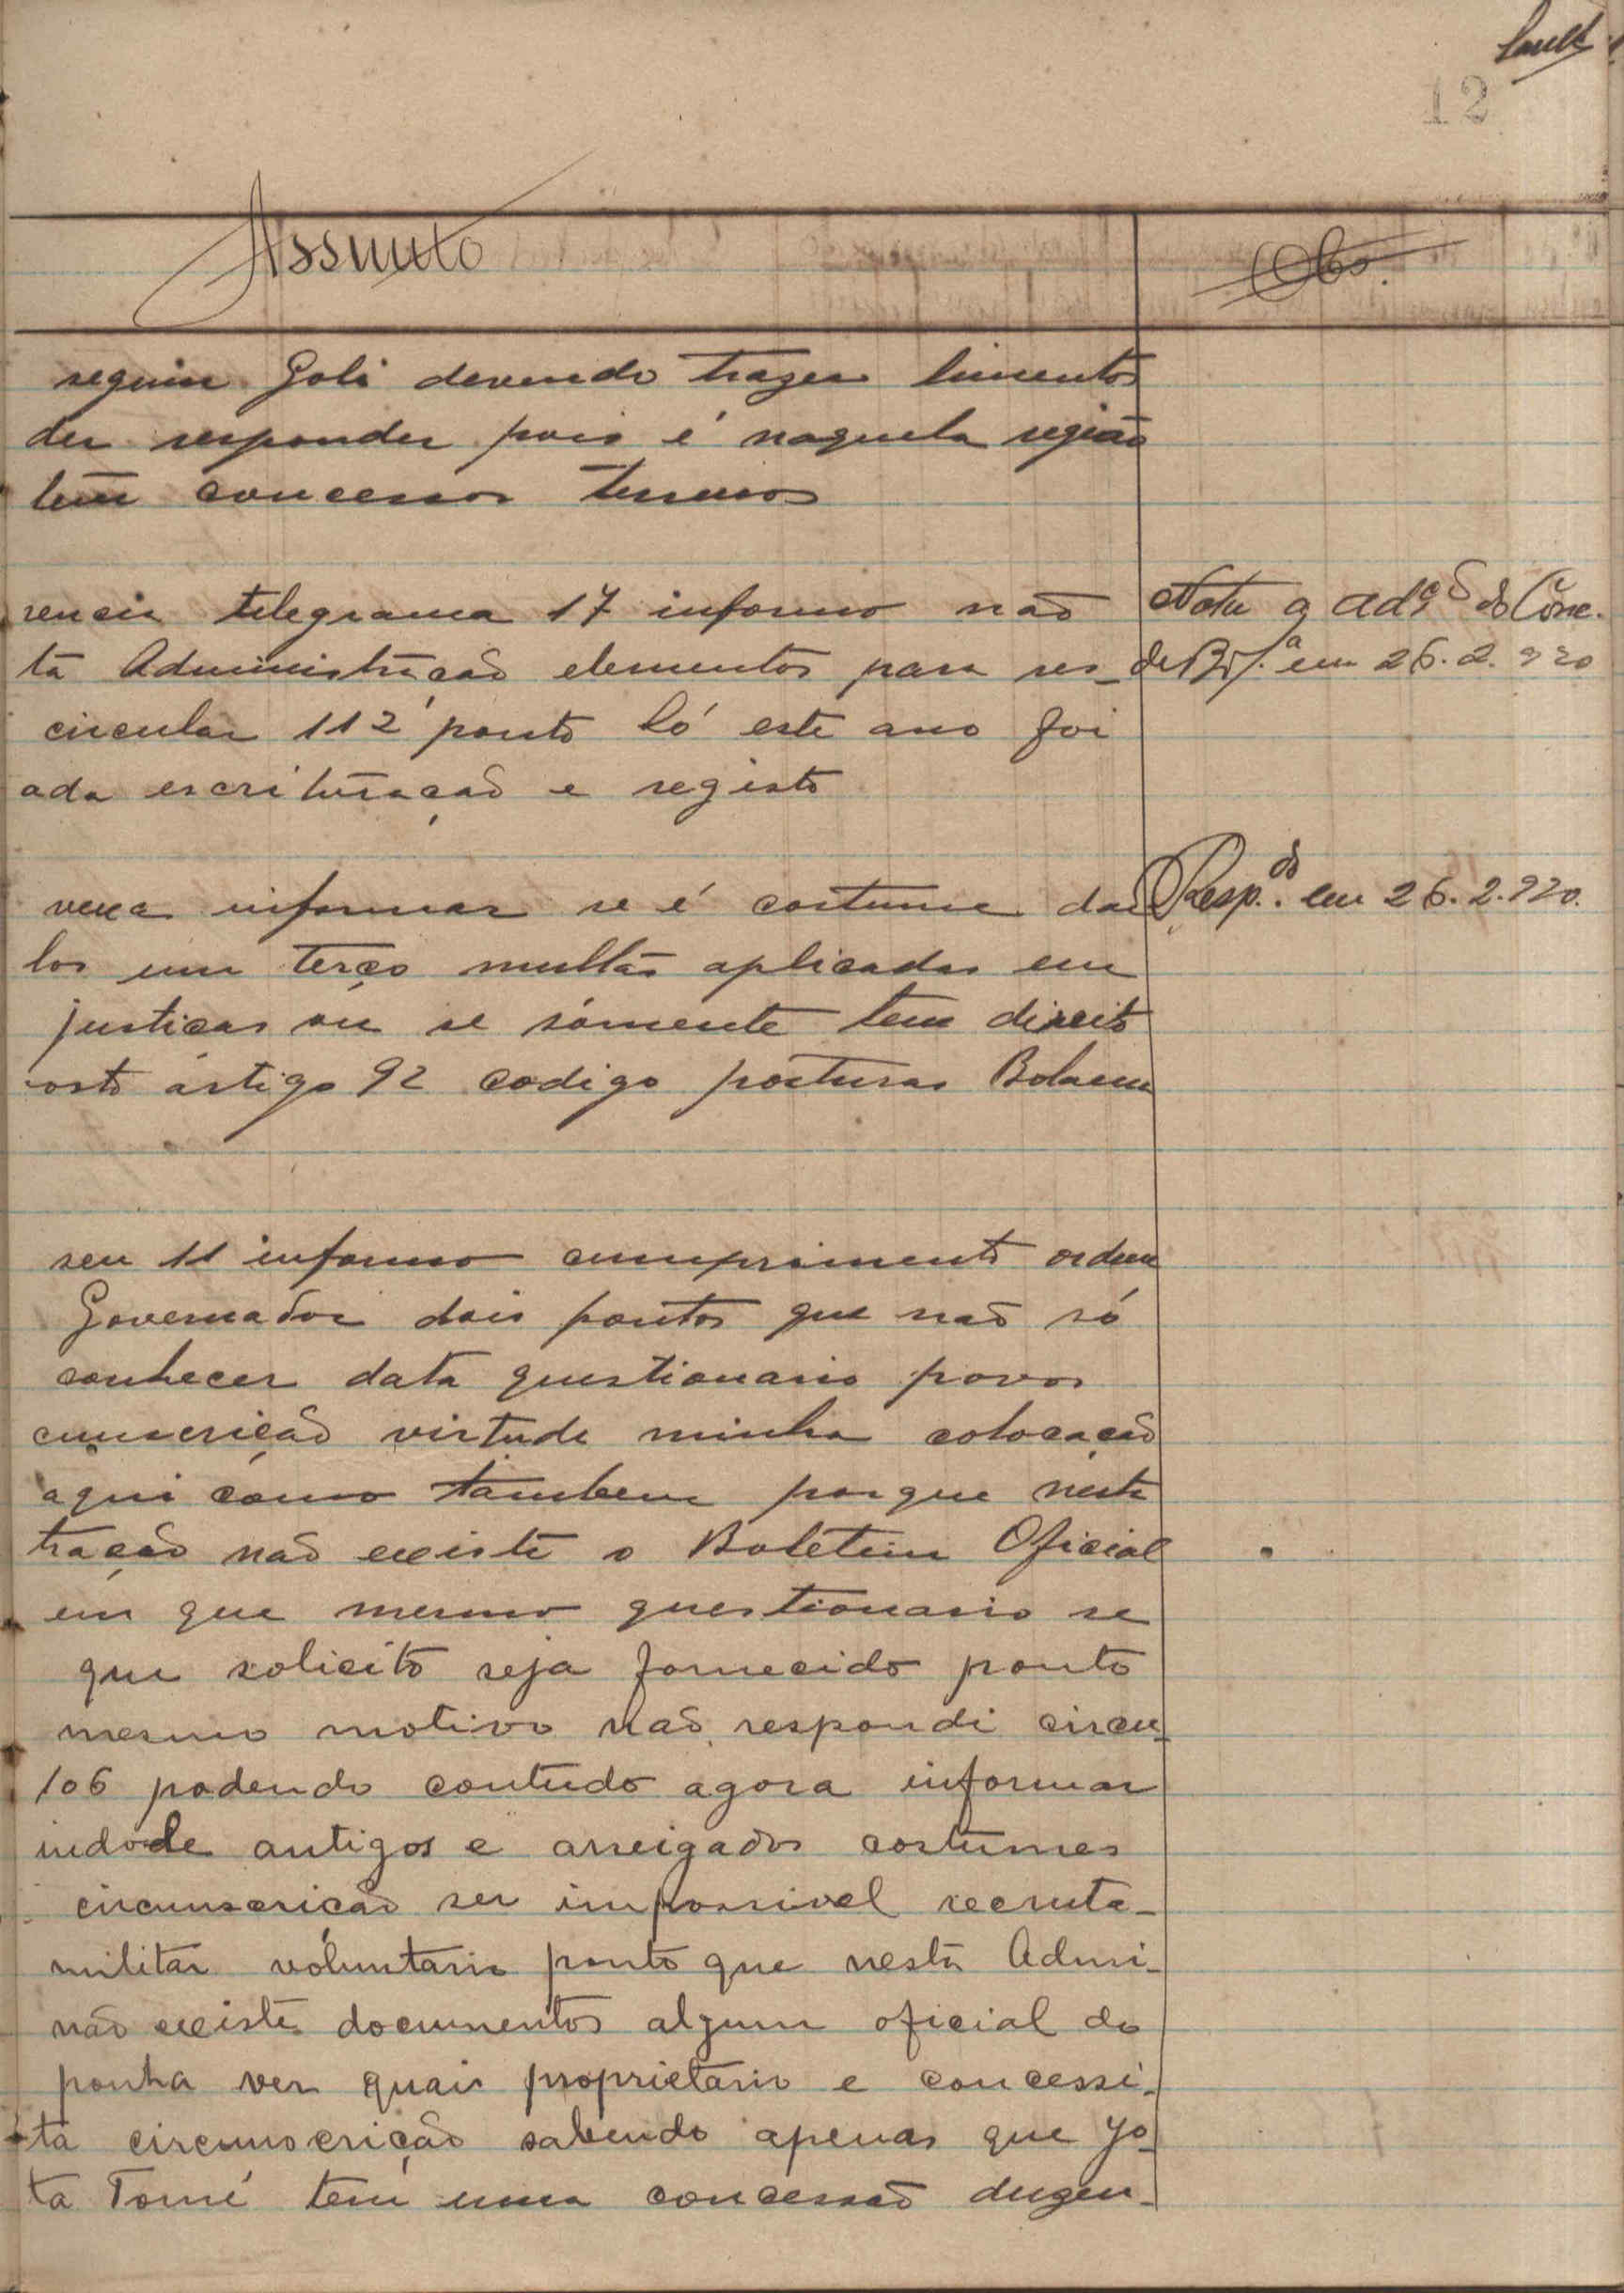 12
Assunto
Obs.
seguiu Goli devendo trazer
der responder pois é naquela região
tem concessos terrenos
rencia telegrama 17 informo não
ta Administração elementos para res-
circular 112 ponto Só este ano foi
ada escrituração e registo
Nota a Adm. do Conc.
de em 26.2.920
vexa informar se é costume dar
los um terço multas aplicadas em
justiças ou se sómente tem direito
osto artigo 92 codigo posturas Bolama
Resp.do em 26.2.920.
seu 11 informo cumprimento ordem
Governador dois pontos que não só
conhecer data questionario povos
cunscrição virtude minha colocação
aqui como tambem porque nesta
tração não existe o Boletim Oficial
em que mesmo questionario se
que solicito seja fornecido ponto
mesmo motivo não respondi circu-
106 podendo contudo agora informar
indole antigos e arreigados costumes
circunscrição ser impossivel recruta-
militar voluntario ponto que nesta Admi-
não existe documentos algum oficial do
ponha ver quais proprietario e concessi-
ta circunscrição sabendo apenas que Jo-
ta Tomé tem uma concessão duzen-